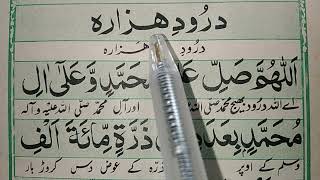 درُودِ هزاره
درُودِ هزاره
اَللّٰهُمَّ صَلِّ مُحَمَّدٍ وَّعَلٰٓى اٰلِ
اے اللہ درود بھیج محمد صلی اللہ اور آل محمد صلی اللہ علیہ وآلہ
مُحَمَّدٍۢ بِعَدَدِ ذَرَّةٍ مِّائَةَ اَلْفِ
وسلم کے اوپر ذرّہ کے عوض دس کروڑ بار